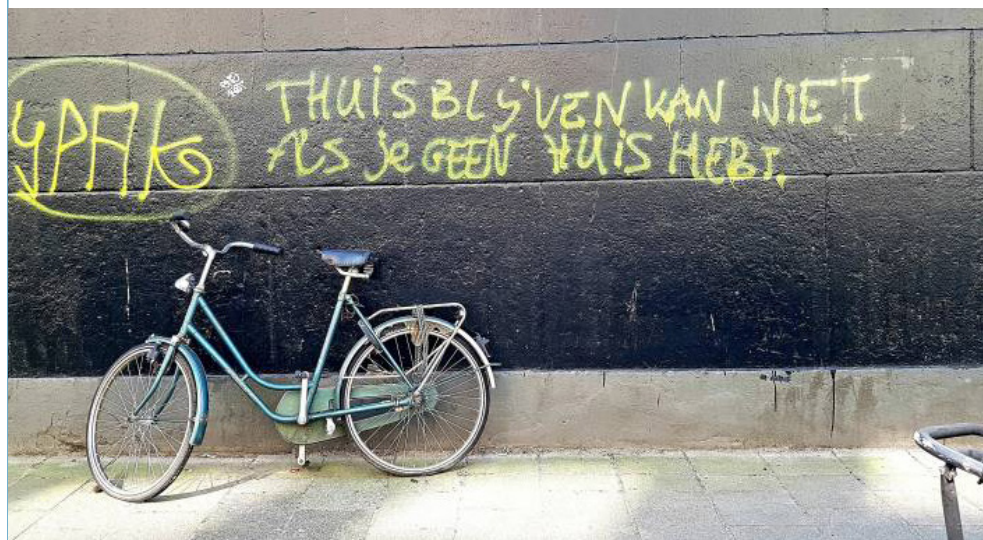 THUIS BLIJVEN KAN NIET
ALS JE GEEN HUIS HEBT.